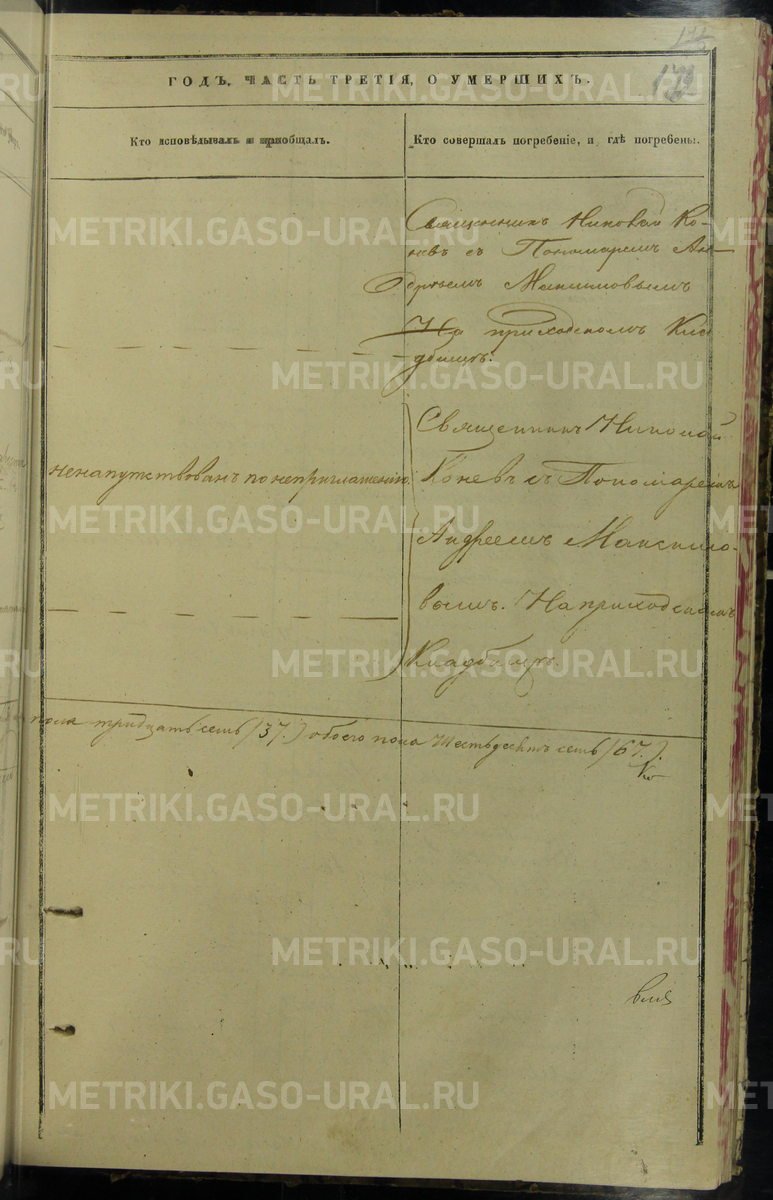 172
ГОДЪ, ЧАСТЬ ТРЕТІЯ, О УМЕРШИХЪ.
Кто исповѣдывалъ и приобщалъ.
Кто совершалъ погребеніе, и гдѣ погребены.
Священникъ Николай Ко-
невъ съ Пономаремъ Ан-
дреемъ Максимовымъ
На приходскомъ Кла
дбищѣ.
ненапутствованъ по неприглашенію.
Священникъ Николай
Коневъ съ Пономаремъ
Андреемъ Максимо-
вымъ. На приходскомъ
Кладбищѣ.
пола тридцать семь (37.) обоего пола Шестьдесятъ семь (67.).
METRIKI.GASO-URAL.RU